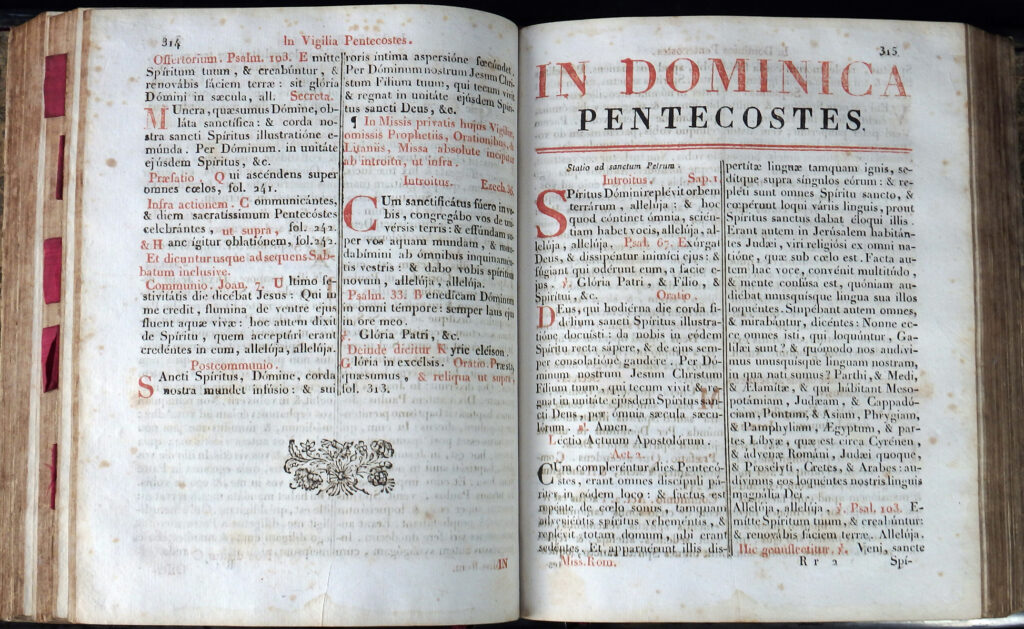 314
In Vigilia Pentecostes.
Offertorium. Psalm. 103. Emitte
Spíritum tuum, & creabúntur, &
renovábis fáciem terræ: sit glória
Dómini in sæcula, all. Secreta.
MUnera, quæsumus Dómine, ob-
láta sanctífica: & corda no-
stra sancti Spíritus illustratióne e-
múnda. Per Dóminum. in unitáte
ejúsdem Spíritus, &c.
Præfatio. Qui ascéndens super
omnes cœlos, fol. 241.
Infra actionem. Communicántes,
& diem sacratíssimum Pentecóstes
celebrántes, ut supra, fol. 242.
& Hanc ígitur oblatiónem, fol. 242.
Et dicuntur usque ad sequens Sab-
batum inclusive.
Communio. Joan. 7. Ultimo fe-
stivitátis die dicébat Jesus: Qui in
me credit, flúmina de ventre ejus
fluent aquæ vivæ: hoc autem dixit
de Spíritu, quem acceptúri erant
credéntes in eum, allelúja, allelúja.
Postcommunio.
SAncti Spíritus, Dómine, corda
nostra mundet infúsio: & sui
roris íntima aspersióne fœcúndet.
Per Dóminum nostrum Jesum Chri-
stum Fílium tuum, qui tecum vivit
& regnat in unitáte ejúsdem Spíri-
tus sancti Deus, &c.
¶ In Missis privatis hujus Vigiliæ,
omissis Prophetiis, Orationibus, &
Litaniis, Missa absolute incipitur
ab introitu, ut infra.
Introitus. Ezech. 36.
CUm sanctificátus fúero in vo-
bis, congregábo vos de uni-
vérsis terris: & effúndam su-
per vos aquam mundam, & mun-
dabímini ab ómnibus inquinamén-
tis vestris: & dabo vobis spíritum
novum, allelúja, allelúja.
Psalm. 33. Benedícam Dóminum
in omni témpore: semper laus ejus
in ore meo.
℣. Glória Patri, &c.
Deinde dicitur Kyrie eléison.
Glória in excélsis. Oratio. Præsta,
quæsumus, & reliqua ut supra,
fol. 313.
IN
315
IN DOMINICA
PENTECOSTES.
Statio ad sanctum Petrum.
Introitus. Sap. 1.
SPíritus Dómini replévit orbem
terrárum, allelúja: & hoc
quod cóntinet ómnia, scién-
tiam habet vocis, allelúja, al-
lelúja, allelúja. Psal. 67. Exúrgat
Deus, & dissipéntur inimíci ejus: &
fúgiant qui odérunt eum, a fácie e-
jus. ℣. Glória Patri, & Fílio, &
Spirítui, &c. Oratio.
DEus, qui hodiérna die corda fi-
délium sancti Spíritus illustra-
tióne docuísti: da nobis in eódem
Spíritu recta sápere, & de ejus semper
consolatióne gaudére. Per Dó-
minum nostrum Jesum Christum
Fílium tuum, qui tecum vivit & re-
gnat in unitáte ejúsdem Spíritus san-
cti Deus, per ómnia sæcula sæcu-
lórum. ℟. Amen.
Lectio Actuum Apostolórum.
Act. 2.
CUm compleréntur dies Pentecó-
stes, erant omnes discípuli pá-
riter in eódem loco: & factus est
repénte de cœlo sonus, tamquam
adveniéntis spíritus veheméntis, &
replévit totam domum, ubi erant
sedéntes. Et apparuérunt illis dis-
Miss. Rom.
pertítæ linguæ tamquam ignis, se-
dítque supra síngulos eórum: & re-
pléti sunt omnes Spíritu sancto, &
cœpérunt loqui váriis linguis, prout
Spíritus sanctus dabat éloqui illis.
Erant autem in Jerúsalem habitán-
tes Judæi, viri religiósi ex omni na-
tióne, quæ sub cœlo est. Facta au-
tem hac voce, convénit multitúdo,
& mente confúsa est, quóniam au-
diébat unusquísque lingua sua illos
loquéntes. Stupébant autem omnes,
& mirabántur, dicéntes: Nonne ec-
ce omnes isti, qui loquúntur, Ga-
lilæi sunt? & quómodo nos audívi-
mus unusquísque linguam nostram,
in qua nati sumus? Parthi, & Medi,
& Ælamítæ, & qui hábitant Meso-
potámiam, Judæam, & Cappadó-
ciam, Pontum, & Asiam, Phrygiam,
& Pamphyliam, Ægyptum, & par-
tes Líbyæ, quæ est circa Cyrénen,
& ádvenæ Románi, Judæi quoque,
& Prosélyti, Cretes, & Arabes: au-
dívimus eos loquéntes nostris linguis
magnália Dei.
Allelúja, allelúja, ℣. Psal. 103. E-
mítte Spíritum tuum, & creabúntur:
& renovábis fáciem terræ. Allelúja.
Hic genuflectitur. ℣. Veni, sancte
Rr 2
Spí-